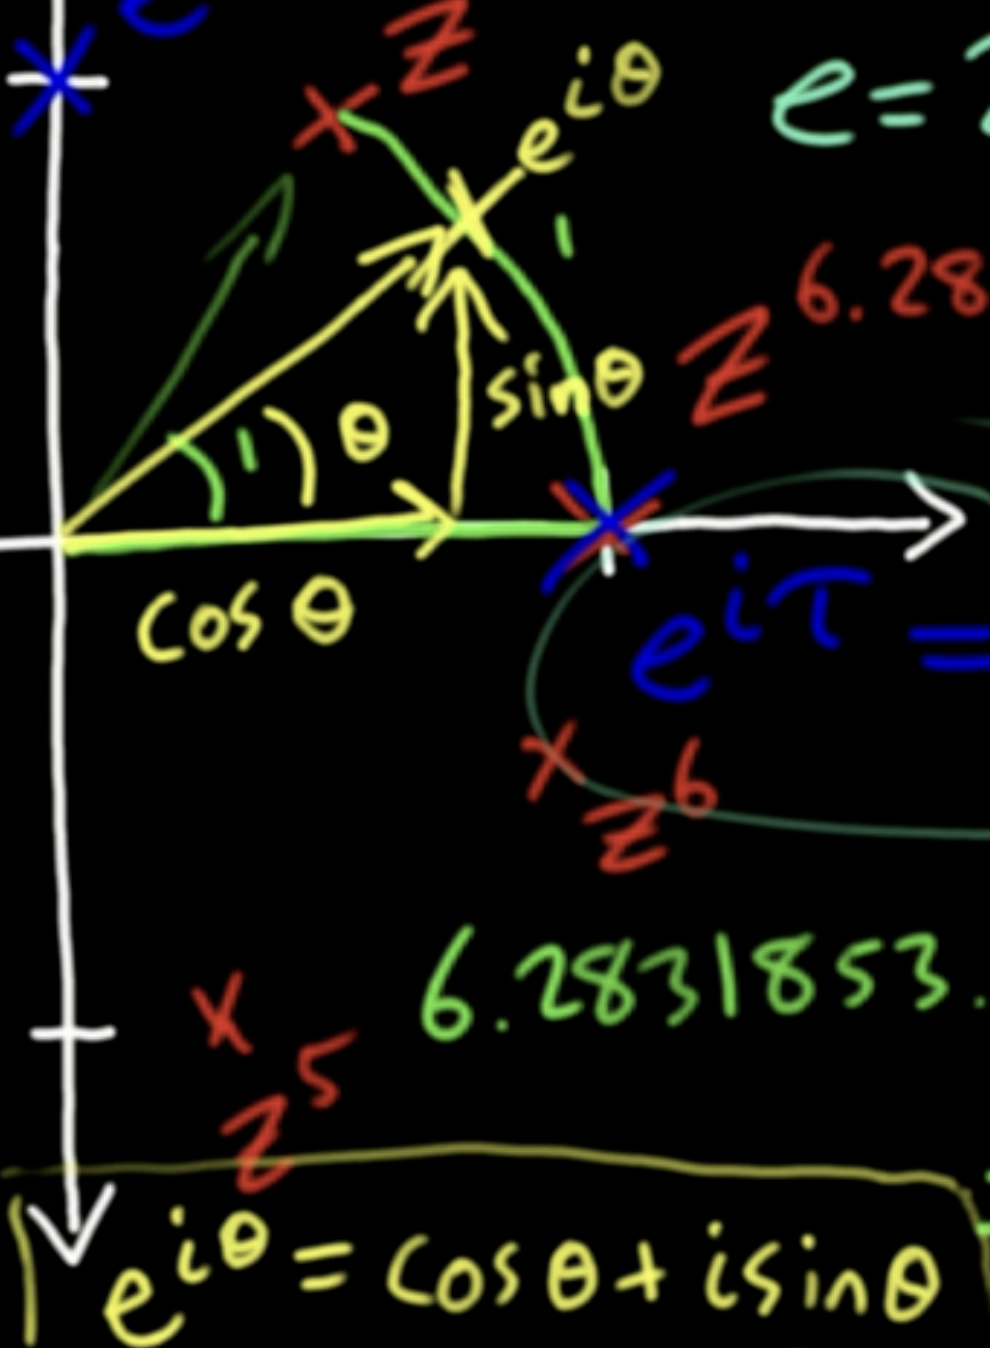 z
e^{iθ}
e=
1
z^{6.28
sinθ
1
θ
cos θ
e^{iτ} =
z^6
6.2831853.
z^5
e^{iθ} = cos θ + i sin θ